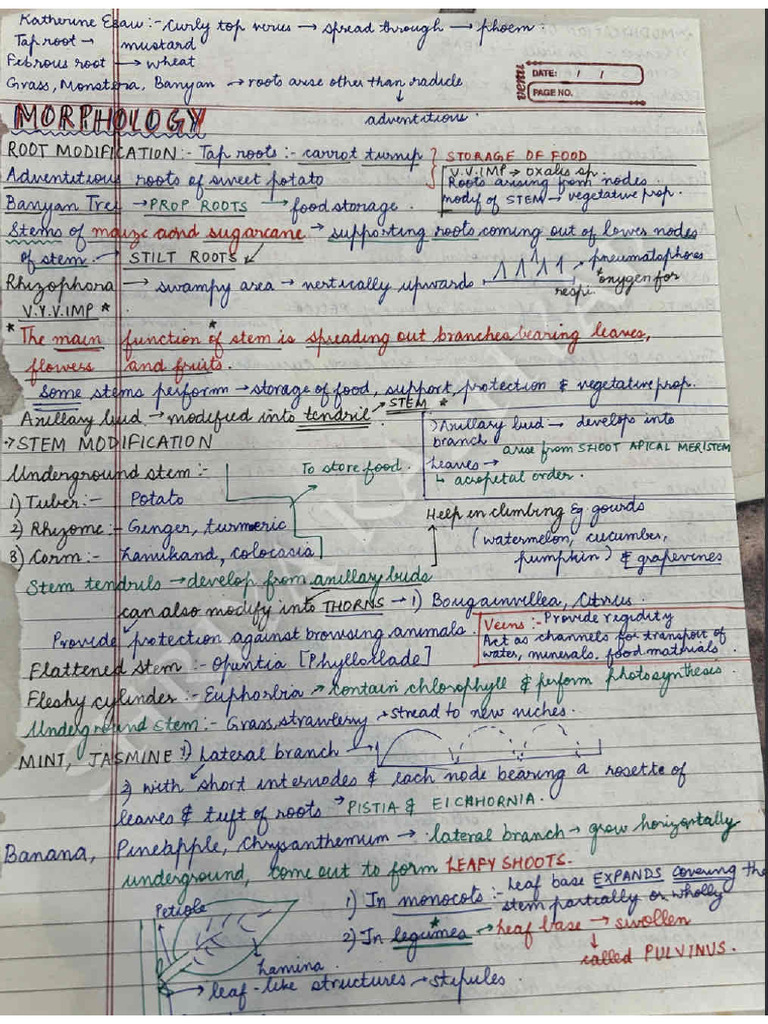 Katherine Esau :- Curly top verus → spread through → phoem :
Tap root → mustard
Febrous root → wheat
Grass, Monstera, Banyan → roots arise other than radicle
↓
adventitious.
venus
DATE: / /
PAGE NO.
MORPHOLOGY
ROOT MODIFICATION :- Tap roots :- carrot turnip } STORAGE OF FOOD
Adventitious roots of sweet potato
V.V.IMP → oxalis sp.
Roots arising from nodes.
modif of STEM → vegetative prop.
Banyan Tree → PROP ROOTS → food storage.
Stems of maize aond sugarcane → supporting roots coming out of lower nodes
of stem. → STILT ROOTS
Rhizophora → swampy area → vertically upwards → pneumatophores
*oxygen for
respi.
V.Y.V.IMP *
* The main function of stem is spreading out branches bearing leaves,
flowers and fruits.
Some stems perform → storage of food, support, protection & vegetative prop.
Axillary bud → modified into tendril → STEM *
→ STEM MODIFICATION
) Axillary bud → develops into
branch
arise from SHOOT APICAL MERISTEM
Leaves →
↳ acropetal order.
Underground stem :- To store food.
1) Tuber :- Potato
2) Rhyzome :- Ginger, turmeric
3) Corm :- Zamikand, colocasia
Help in climbing Eg. gourds
(watermelon, cucumber,
pumpkin) & grapevines
Stem tendrils → develop from axillary buds
can also modify into THORNS → 1) Bougainvillea, Citrus.
Provide protection against browsing animals.
Veins :- Provide rigidity
Act as channels for transport of
water, minerals, food materials.
Flattened stem :- Opuntia [Phylloclade]
Fleshy cylinder :- Euphorbia → Contain chlorophyll & perform photosynthesis.
Underground stem :- Grass, strawberry → Stread to new niches.
MINT, JASMINE 1) Lateral branch →
2) with short internodes & each node bearing a rosette of
leaves & tuft of roots → PISTIA & EICHHORNIA.
Banana, Pineapple, Chrysanthemum → lateral branch → grow horizontally
underground, come out to form LEAFY SHOOTS.
1) In monocots :- Leaf base EXPANDS covering the
stem partially or wholly
2) In legumes → Leaf base → swollen
↓
called PULVINUS.
Petiole
Lamina.
leaf-like structures → stipules